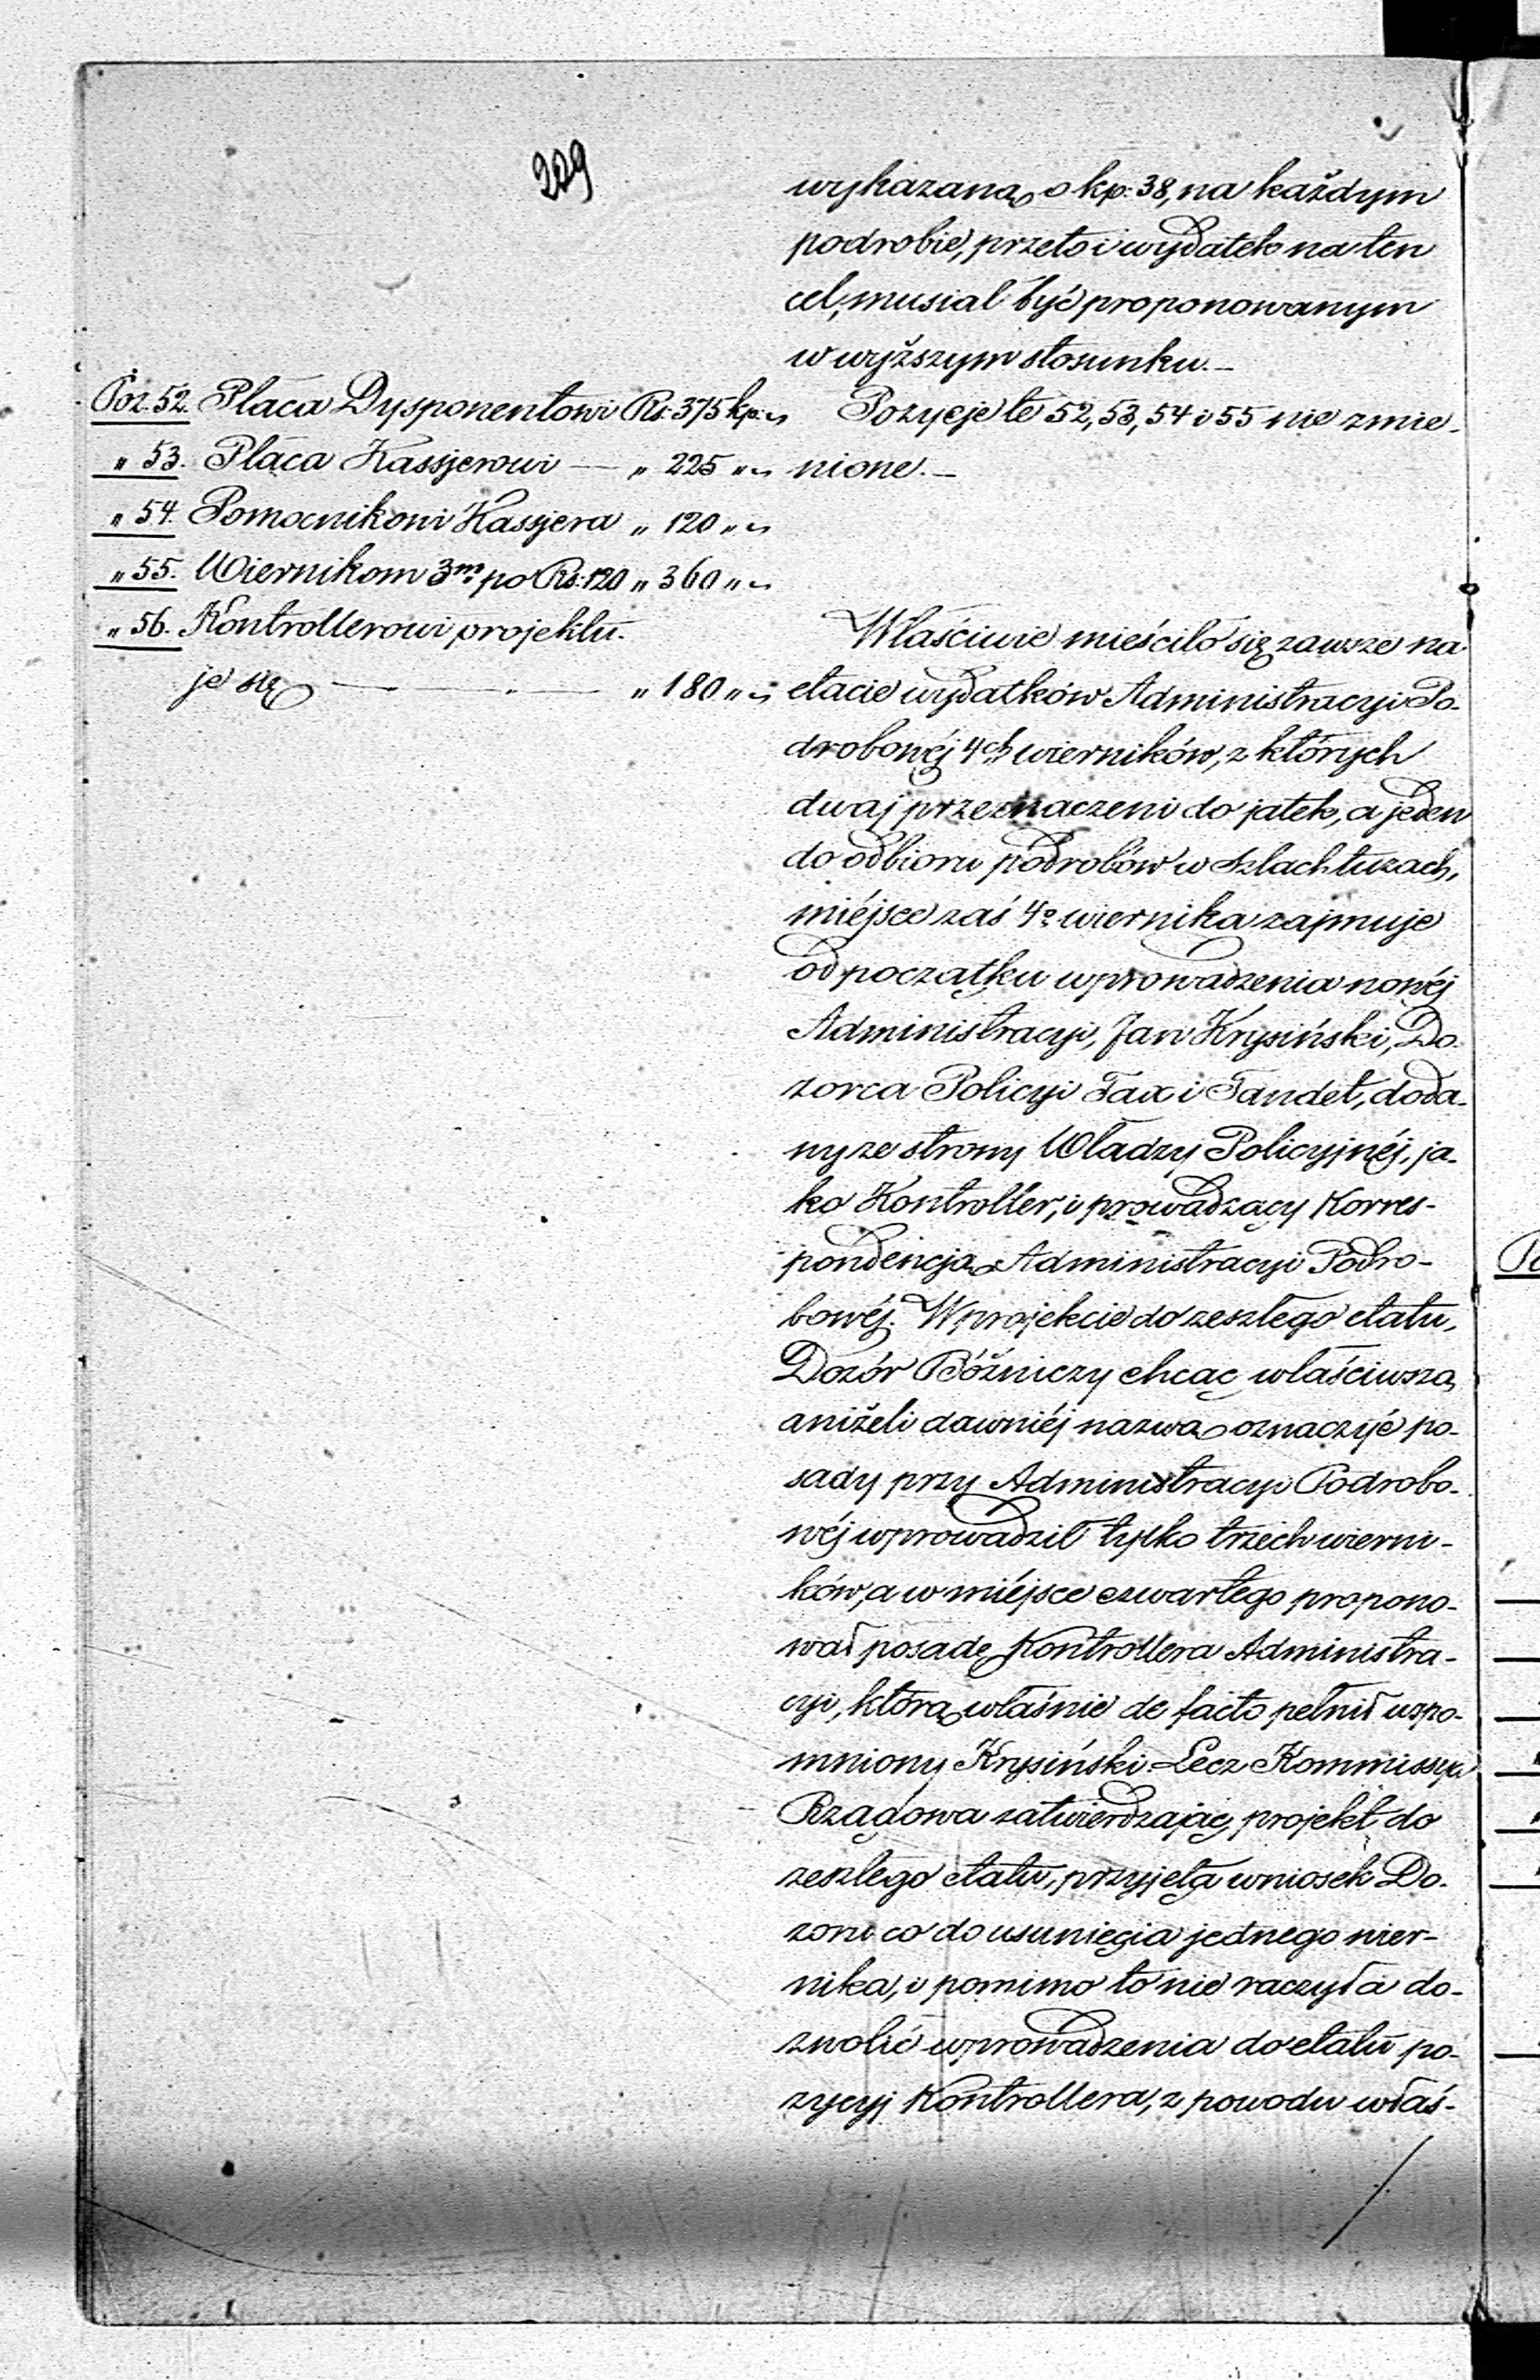 229
wykazaną o kp: 38, na każdym
podrobie, przeto i wydatek na ten
cel, musiał być proponowanym
w wyższym stosunku.—
Poz. 52. Płaca Dysponentowi Rs: 375 kp: "
" 53. Płaca Kassjerowi — " 225 " "
" 54. Pomocnikowi Kassjera " 120 " "
" 55. Wiernikom 3m po Rs: 120 " 360 " "
" 56. Kontrollerowi projektu-
je się — " 180 " "
Pozycje te 52, 53, 54 i 55 nie zmie-
nione.—
Właściwie mieściło się zawsze na
etacie wydatków Administracyi Po-
drobowéj 4ch wierników, z których
dwaj przeznaczeni do jatek, a jeden
do odbioru podrobów w szlachtuzach,
miéjsce zaś 4o wiernika zajmuje
od początku wprowadzenia nowéj
Administracyi, Jan Krysiński, Do-
zorca Policyi Tax i Tandet, doda-
ny ze strony Władzy Policyjnéj, ja-
ko Kontroller, i prowadzący Korres-
pondencją Administracyi Podro-
bowéj. W projekcie do zeszłego etatu,
Dozór Bóżniczy chcąc właściwszą
aniżeli dawniéj nazwą oznaczyć po-
sady przy Administracyi Podrobo-
wéj wprowadził tylko trzech wierni-
ków, a w miéjsce czwartego propono-
wał posadę Kontrollera Administra-
cyi, którą właśnie de facto pełnił wspo-
mniony Krysiński. Lecz Kommissya
Rządowa zatwierdzając projekt do
zeszłego etatu, przyjęła wniosek Do-
zoru co do usunięcia jednego wier-
nika, i pomimo to nie raczyła do-
zwolić wprowadzenia do etatu po-
zycyj Kontrollera, z powodu właś-